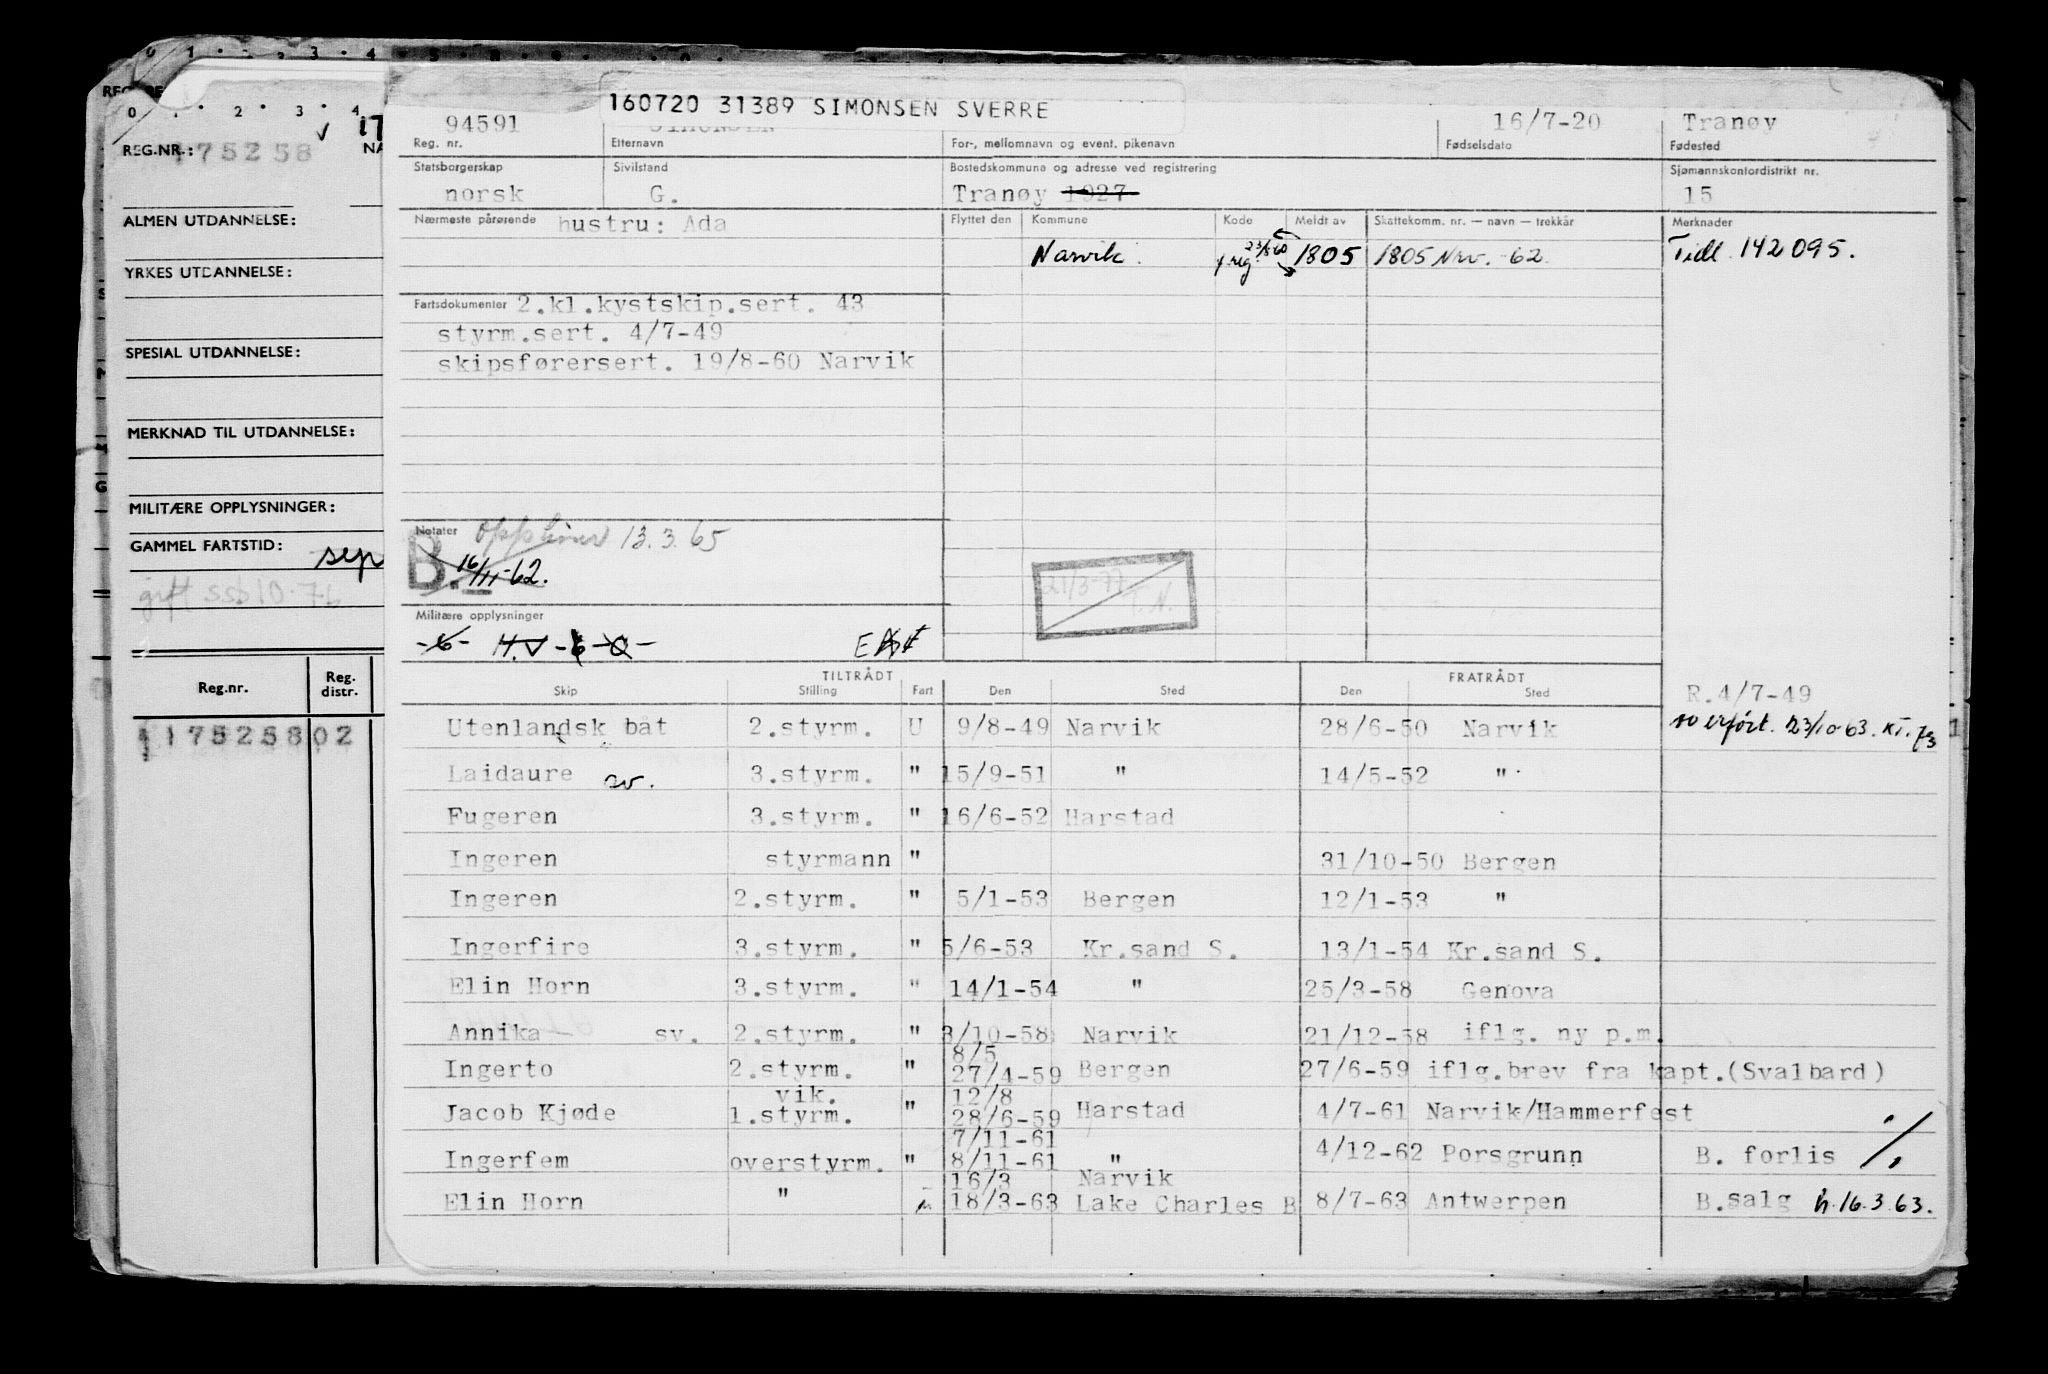 0 1 2 3 4
REG.NR.: 175258
ALMEN UTDANNELSE:
YRKES UTDANNELSE:
SPESIAL UTDANNELSE:
MERKNAD TIL UTDANNELSE:
MILITÆRE OPPLYSNINGER:
GAMMEL FARTSTID: sep
gift ssb 10.76
Reg.nr. Reg. distr.
175258 02
160720 31389 SIMONSEN SVERRE
94591 16/7-20 Tranøy
Reg. nr. Etternavn For-, mellomnavn og event. pikenavn Fødselsdato Fødested
Statsborgerskap Sivilstand Bostedskommune og adresse ved registrering Sjømannskontordistrikt nr.
norsk G. Tranøy 1927 15
Nærmeste pårørende hustru: Ada Flyttet den Kommune Kode Meldt av Skattekomm. nr. — navn — trekkår Merknader
Narvik. 1805 1805 Nrv. -62. Tidl. 142095.
Fartsdokumenter 2.kl.kystskip.sert. 43
styrm.sert. 4/7-49
skipsførersert. 19/8-60 Narvik
Notater 13.3.65
B. 16/11-62.
21/3-77 T.N.
Militære opplysninger
-6- H.V -6-O-
TILTRÅDT FRATRÅDT
Skip Stilling Fart Den Sted Den Sted R.4/7-49
Utenlandsk båt 2.styrm. U 9/8-49 Narvik 28/6-50 Narvik 23/10-63.
Laidaure sv. 3.styrm. " 15/9-51 " 14/5-52 "
Fugeren 3.styrm. " 16/6-52 Harstad
Ingeren styrmann " 31/10-50 Bergen
Ingeren 2.styrm. " 5/1-53 Bergen 12/1-53 "
Ingerfire 3.styrm. " 5/6-53 Kr.sand S. 13/1-54 Kr.sand S.
Elin Horn 3.styrm. " 14/1-54 " 25/3-58 Genova
Annika sv. 2.styrm. " 3/10-58 Narvik 21/12-58 iflg. ny p.m.
8/5
Ingerto 2.styrm. " 27/4-59 Bergen 27/6-59 iflg.brev fra kapt.(Svalbard)
vik. 12/8
Jacob Kjøde 1.styrm. " 28/6-59 Harstad 4/7-61 Narvik/Hammerfest
7/11-61
Ingerfem overstyrm. " 8/11-61 " 4/12-62 Porsgrunn B. forlis
16/3 Narvik
Elin Horn " 18/3-63 Lake Charles B 8/7-63 Antwerpen B.salg h.16.3.63.